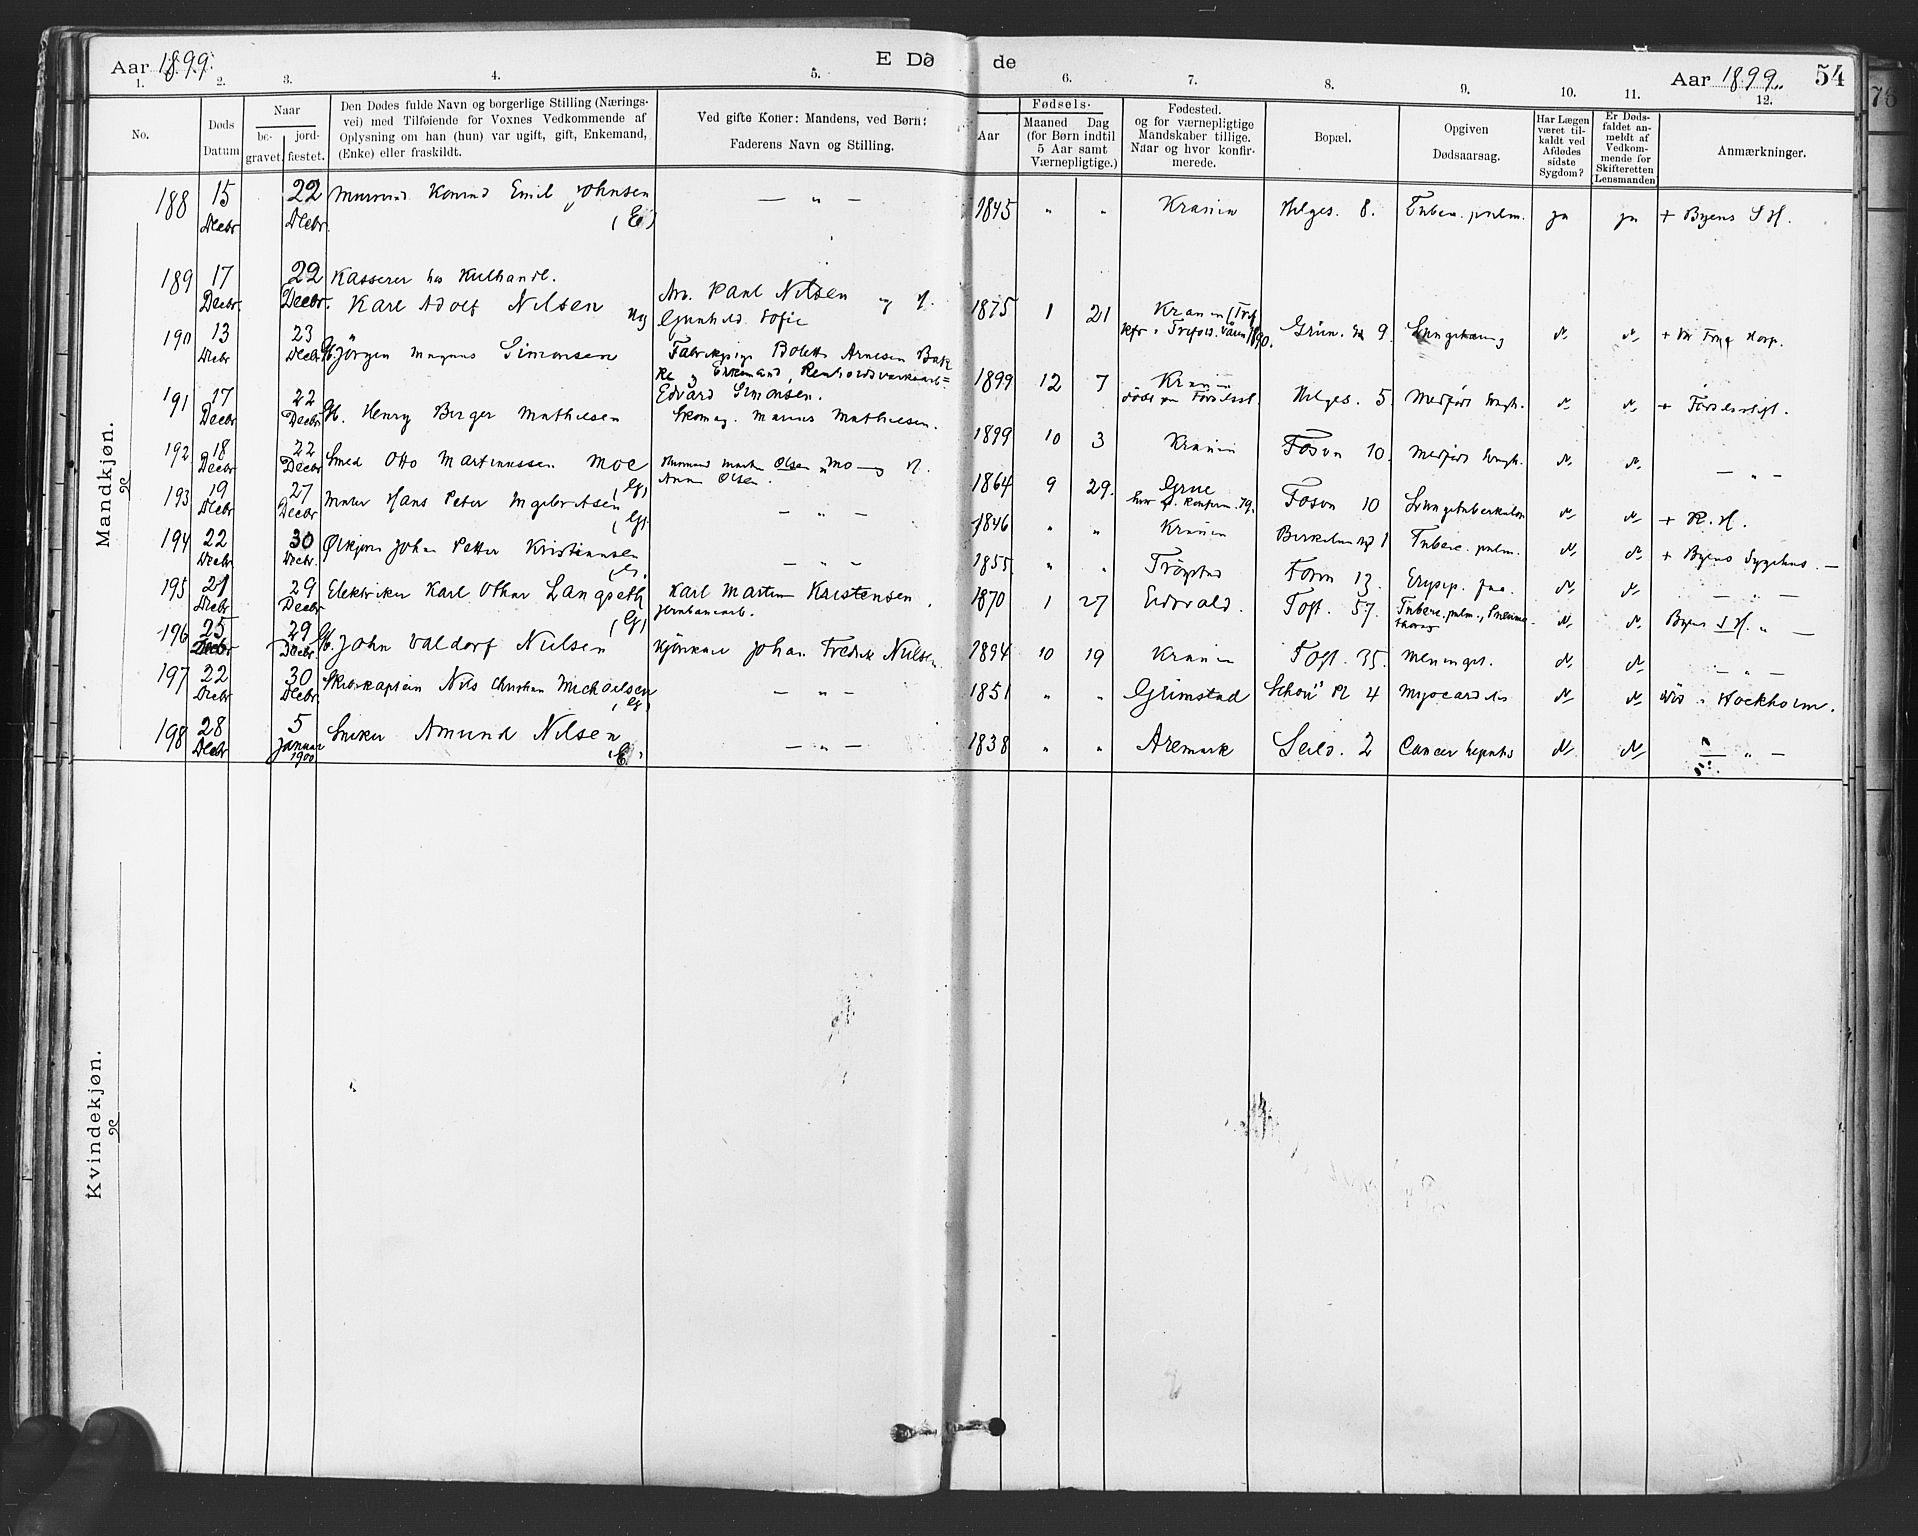 Aar 1899.
E Dø de
Aar 1899.
54
76
1. 2. 3. 4. 5. 6. 7. 8. 9. 10. 11. 12.
No.
Døds Datum
Naar
be- gravet.
jord- fæstet.
Den Dødes fulde Navn og borgerlige Stilling (Nærings-
vei) med Tilføiende for Voxnes Vedkommende af
Oplysning om han (hun) var ugift, gift, Enkemand,
(Enke) eller fraskildt.
Ved gifte Koner: Mandens, ved Børn:
Faderens Navn og Stilling.
Fødsels-
Aar
Maaned Dag
(for Børn indtil
5 Aar samt
Værnepligtige.)
Fødested.
og for værnepligtige
Mandskaber tillige.
Naar og hvor konfir-
merede.
Bopæl.
Opgiven
Dødsaarsag.
Har Lægen
været til-
kaldt ved
Afdødes
sidste
Sygdom?
Er Døds-
faldet an-
meldt af
Vedkom-
mende for
Skifteretten
Lensmanden
Anmærkninger.
Mandkjøn.
188 15 Decbr 22 Decbr. Murmd. Konrad Emil Johnsen (E) — " — 1845 " " Krania Helges. 8. Tuberc. pulm. ja ja + Byens S. H.
189 17 Decbr. 22 Decbr. Kasserer hos Kulhandl.
Karl Adolf Nilsen Arb. Paul Nilsen og H.
Gunhild Sofie 1875 1 21 Grün. 9.
190 13 Decbr 23 Decbr Gb. Jörgen Magnus Simonsen Fabrikpige Bolette Arnesen Bak-
ke og Enkemand, Renholdsværksarb=
Edvard Simonsen. 1899 12 7 Krania Helges. 5 Medfødt Svagh. + Fødselsstift.
191 17 Decbr 22 Decbr Gb. Henry Birger Mathiesen Skomag. Marius Mathiesen. 1899 10 3 Krania Fosvn 10. Medfødt Svagh. — " —
192 18 Decbr 22 Decbr Smed Otto Martinussen Moe (G) Olsen Mo og H.
Anne Olsen. 1864 9 29. Grue Fosvn 10 Lungetuberkulose + R. H.
193 19 Decbr 27 Decbr Maler Hans Peter Ingebretsen (G) — " — 1846 " " Krania 1 Tuberc. pulm. + Byens Sygehus. —
194 22 Decbr 30 Decbr. Ølkjører Johan Petter Kristiansen — " — 1855. " " Trøgstad Fosvn 13. Erysip. fac. — " —
195 21 Decbr 29 Decbr Elektriker Karl Othar Langseth (G) Karl Martin Kristensen.
Jernbanearb. 1870 1 27 Eidsvold. Toft. 57. Tuberc. pulm., Pneumo-
thorax Byens S. H. " —
196 25 Decbr 29 Decbr. Gb. John Valdorf Nielsen Kjørekarl Johan Fredrik Nielsen. 1894 10 19 Krania Toft. 35. Meningit. — " —
197 22 Decbr 30 Decbr Skibskaptein Nils Christian Michaelsen (G) — " — 1851 " " Grimstad Schous Pl 4 Myocarditis Død i Stockholm.
198 28 Decbr 5 Januar 1900 Sneker Amund Nilsen (E.) — " — 1838 " " Aremark Seils. 2 Cancer hepatis — " —
Kvindekjøn.